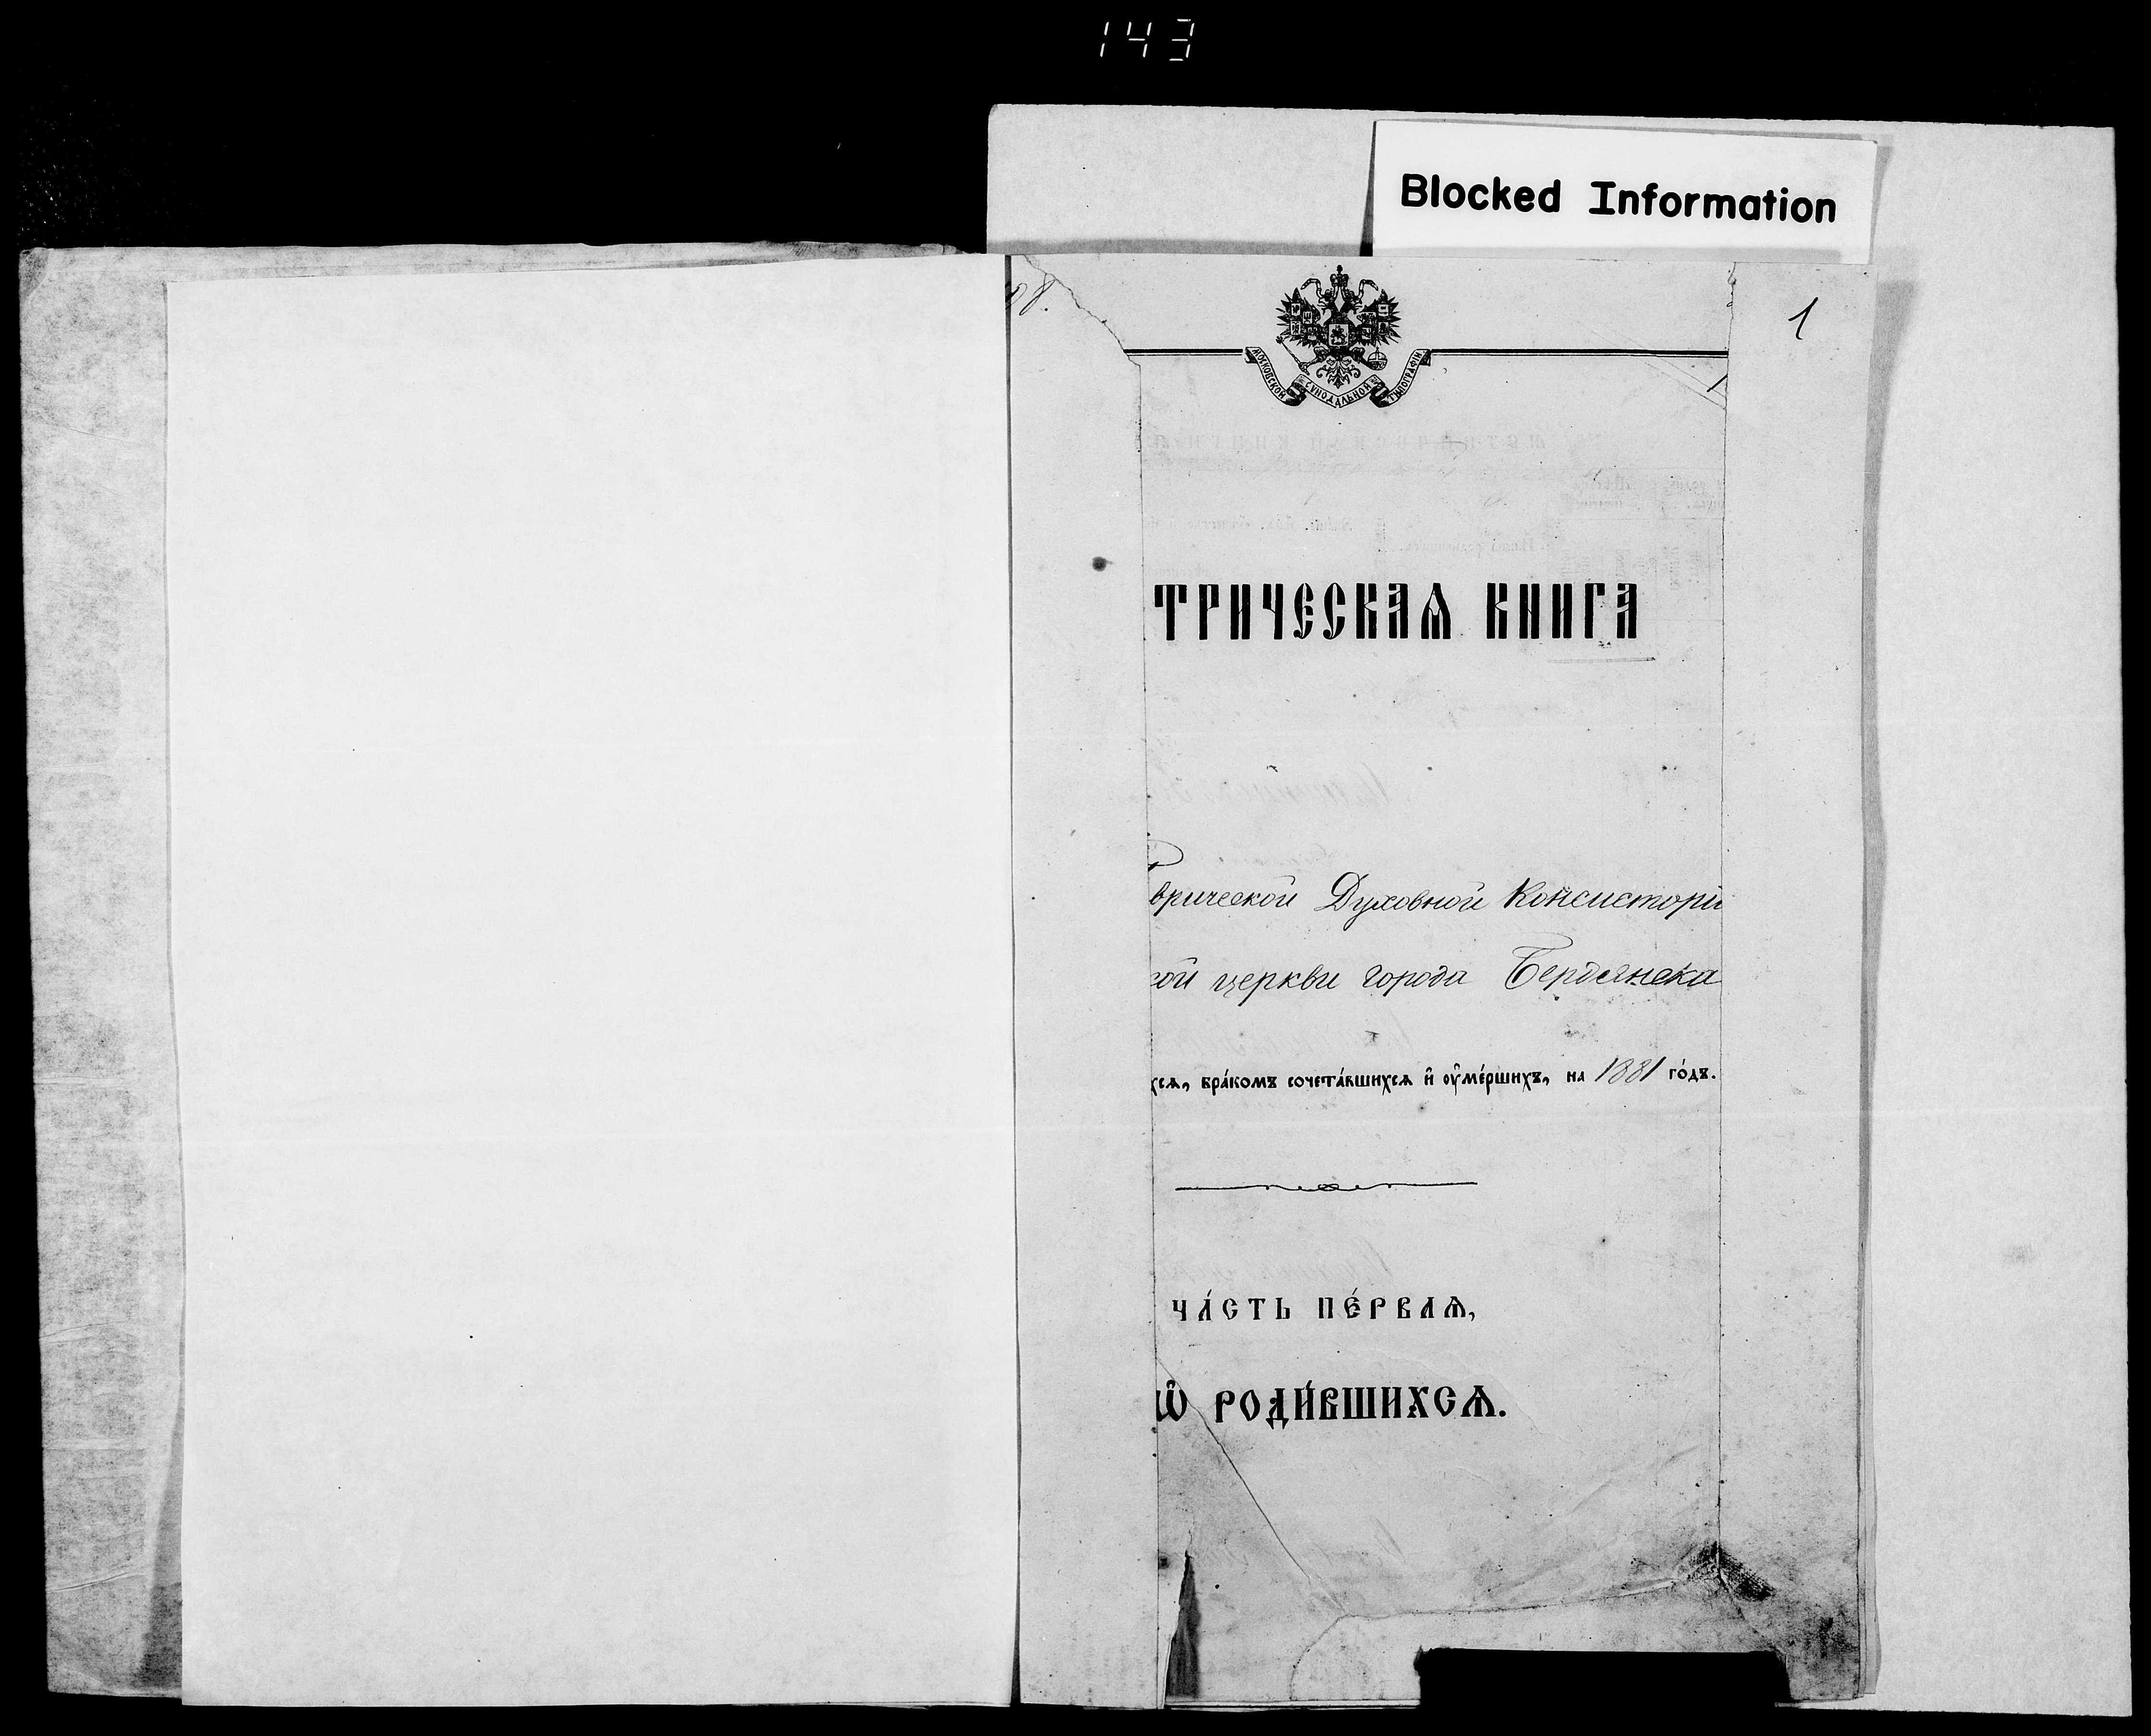 143
Blocked Information
1
МОСКОВСКОЙ СУНОДАЛЬНОЙ ТИПОГРАФІИ
ТРИЧЕСКАѦ КНИГА
врической Духовной Консистори
кой церкви города Бердянска
хсѧ, бра́комъ сочета́вшихсѧ и҆ ᲂу҆ме́ршихъ, на 1881 го́дъ.
ЧА́СТЬ ПЕ́РВАѦ,
Ѽ РОДИ́ВШИХСѦ.